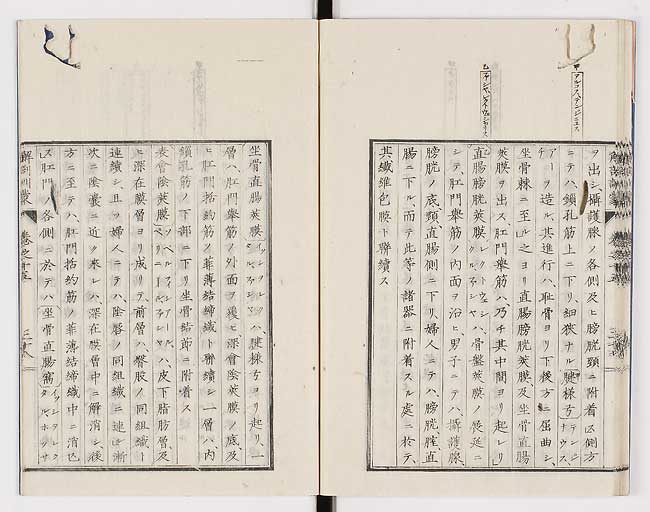 ヲ出シ攝護腺ノ各側及ヒ膀胱頸ニ附着ス側方
ニテハ鎖孔筋上ニ下リ細狹ナル腱樣弓
アーヲ造ル其進行ハ恥骨ヨリ下後方ニ屈曲シ、
坐骨棘ニ至ル之ヨリ直腸膀胱莢膜及坐骨直腸
莢膜ヲ出ス、肛門擧筋ハ乃チ其中間ヨリ起レリ
直腸膀胱莢膜ハ、骨盤莢膜ノ蔓延ニ
シテ肛門擧筋ノ内面ヲ沿ヒ、男子ニテハ攝護腺、
膀胱ノ底、頸、直腸側ニ下リ、婦人ニテハ、膀胱、腟、直
腸ニ下ル、而テ此等ノ諸器ニ附着スル處ニ於テ、
其纖維包膜ト聯續ス
坐骨直腸莢膜ハ、腱樣弓ヨリ起リ、一
層ハ、肛門擧筋ノ外面ヲ覆ヒ深會陰莢膜ノ底及
ヒ肛門括約筋ノ菲薄結締織ト聯續シ一層ハ、内
鎖孔筋ノ下部ニ下リ坐骨結節ニ附着ス
表會陰莢膜ハ、皮下脂肪層及
ヒ深在膜層ヨリ成リテ、前層ハ、臀股ノ同組織ト
連續シ、且ツ婦人ニテハ、陰唇ノ同組織ニ連ル漸
次ニ陰嚢ニ近ク來レハ、深在膜層中ニ解消シ、後
方ニ至テハ、肛門括約筋ノ菲薄結締織中ニ消亡
ス肛門ノ各側ニ於テハ坐骨直腸窩